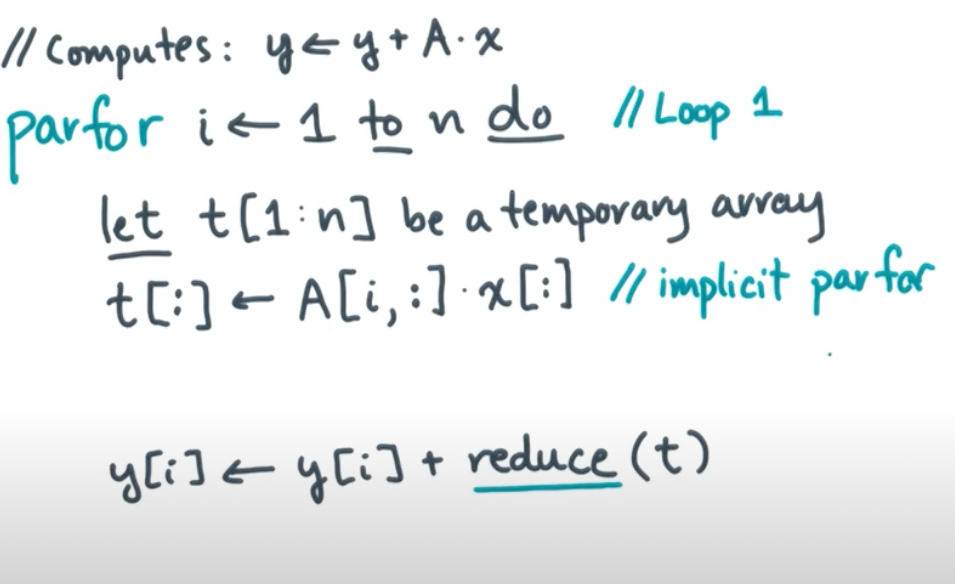 // Computes: y ← y + A · x
parfor i ← 1 to n do // Loop 1
let t[1:n] be a temporary array
t[:] ← A[i,:] · x[:] // implicit par for
y[i] ← y[i] + reduce(t)